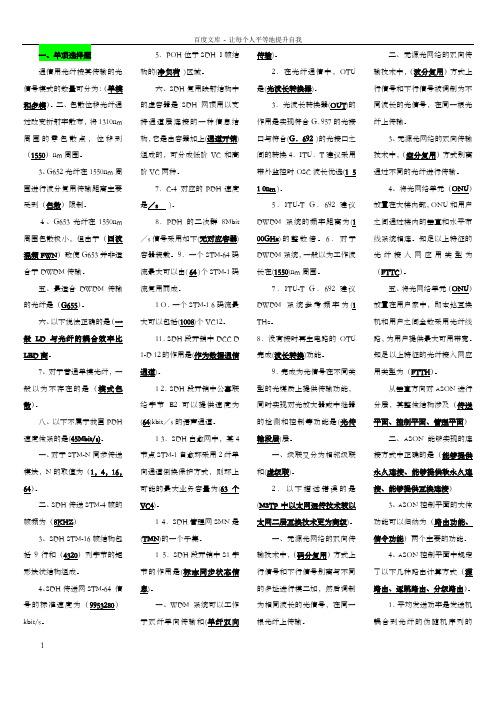 百度文库 - 让每个人平等地提升自我
一、单项选择题
通信用光纤按其传输的光
信号模式的数量可分为:(单模
和多模)。二、色散位移光纤通
过改变折射率散布,将1310nm
周围的零色散点,位移到
(1550)nm周围。
3、G652光纤在1550nm周
围进行波分复用传输距离主要
受到(色散)限制。
4、G653光纤在1550nm
周围色散极小,但由于(四波
混频FWN)致使G653并非适
合于DWDM传输。
五、最适合DWDM传输
的光纤是(G655)。
六、以下说法正确的是(一
般LD与光纤的耦合效率比
LED高。
7、对于普通单模光纤,一
般以为不存在的是(模式色
散)。
八、以下不属于我国PDH
速度体系的是(45Mbit/s)
一、对于STM-N同步传送
模块,N的取值为(1,4,16,
64)。
二、SDH传送STM-4帧的
帧频为(8KHZ)
3、SDH STM-16帧结构包
括9行和(4320)列字节的矩
形块状结构组成。
4、SDH传送网STM-64信
号的标准速度为(9953280)
kbit/s。
5、POH位于SDH-1帧结
构的(净负荷)区域。
六、SDH复用映射结构中
的虚容器是SDH网顶用以支
持通道层连接的一种信息结
构,它是由容器加上(通道开销)
组成的,可分成低阶VC和高
阶VC两种。
7、C-4对应的PDH速度
是(/s )。
8、PDH的二次群8Mbit
/s信号采用如下(无对应容器)
容器装载。9、一个STM-64码
流最大可以由(64)个STM-1码
流复用而成。
10、一个STM-16码流最
大可以包括(1008)个VC12。
11、SDH段开销中DCC D
1-D12的作用是(作为数据通信
通道)。
12、SDH段开销中公事联
络字节E2可以提供速度为
(64)kbit/s的语声通道。
13、SDH自愈网中,某4
节点STM-1自愈环采用2纤单
向通道倒换保护方式,则环上
可能的最大业务容量为(63个
VC4)。
14、SDH管理网SMN是
(TMN)的一个子集。
15、SDH段开销中S1字
节的作用是(标志同步状态信
息)。
一、WDM系统可以工作
于双纤单向传输和(单纤双向
传输)。
2、在光纤通信中,OTU
是(光波长转换器)。
3、光波长转换器(OUT)的
作用是实现符合G.957的光接
口与符合(G.692)的光接口之
间的转换4、ITU-T建议采用
带外监控时OSC波长优选(15
10nm)。
5、ITU-T G.692建议
DWDM系统的频率距离为(1
00GHz)的整数倍。6、对于
DWDM系统,一般以为工作波
长在(1550)nm周围。
7、ITU-T G.692建议
DWDM系统参考频率为(1
THz。
8、没有按时再生电路的OTU
完成(波长转换)功能。
9、完成为光信号在不同类
型的光媒质上提供传输功能,
同时实现对光放大器或中继器
的检测和控制等功能是(光传
输段层)层。
一、级联又分为相邻级联
和(虚级联)。
2、以下描述错误的是
(MSTP中以太网透传技术较以
太网二层互换技术更为高级)。
一、无源光网络的双向传
输技术中,(码分复用)方式上
行信号和下行信号别离与不同
的多址进行模二加,然后调制
为相同波长的光信号,在同一
根光纤上传输。
二、无源光网络的双向传
输技术中,(波分复用)方式上
行信号和下行信号被调制为不
同波长的光信号,在同一根光
纤上传输。
3、无源光网络的双向传输
技术中,(空分复用)方式别离
通过不同的光纤进行传输。
4、将光网络单元(ONU)
放置在大楼内部,ONU和用户
之间通过楼内的垂直和水平布
线系统相连。知足以上特征的
光纤接入网应用类型为
(FTTC)。
五、将光网络单元(ONU)
放置在用户家中,即本地互换
机和用户之间全数采用光纤线
路,为用户提供最大可用带宽。
知足以上特征的光纤接入网应
用类型为(FTTH)。
从垂直方向对ASON进行
分层,其整体结构涉及(传送
平面、控制平面、管理平面)
二、ASON能够实现的连
接方式中正确的是(能够提供
永久连接、能够提供软永久连
接、能够提供互换连接)
3、ASON控制平面的大体
功能可以归纳为(路由功能、
信令功能)两个主要的功能。
4、ASON控制平面中规定
了以下几种路由计算方式(源
路由、逐跳路由、分级路由)。
1、平均发送功率是发送机
耦合到光纤的伪随机序列的
1